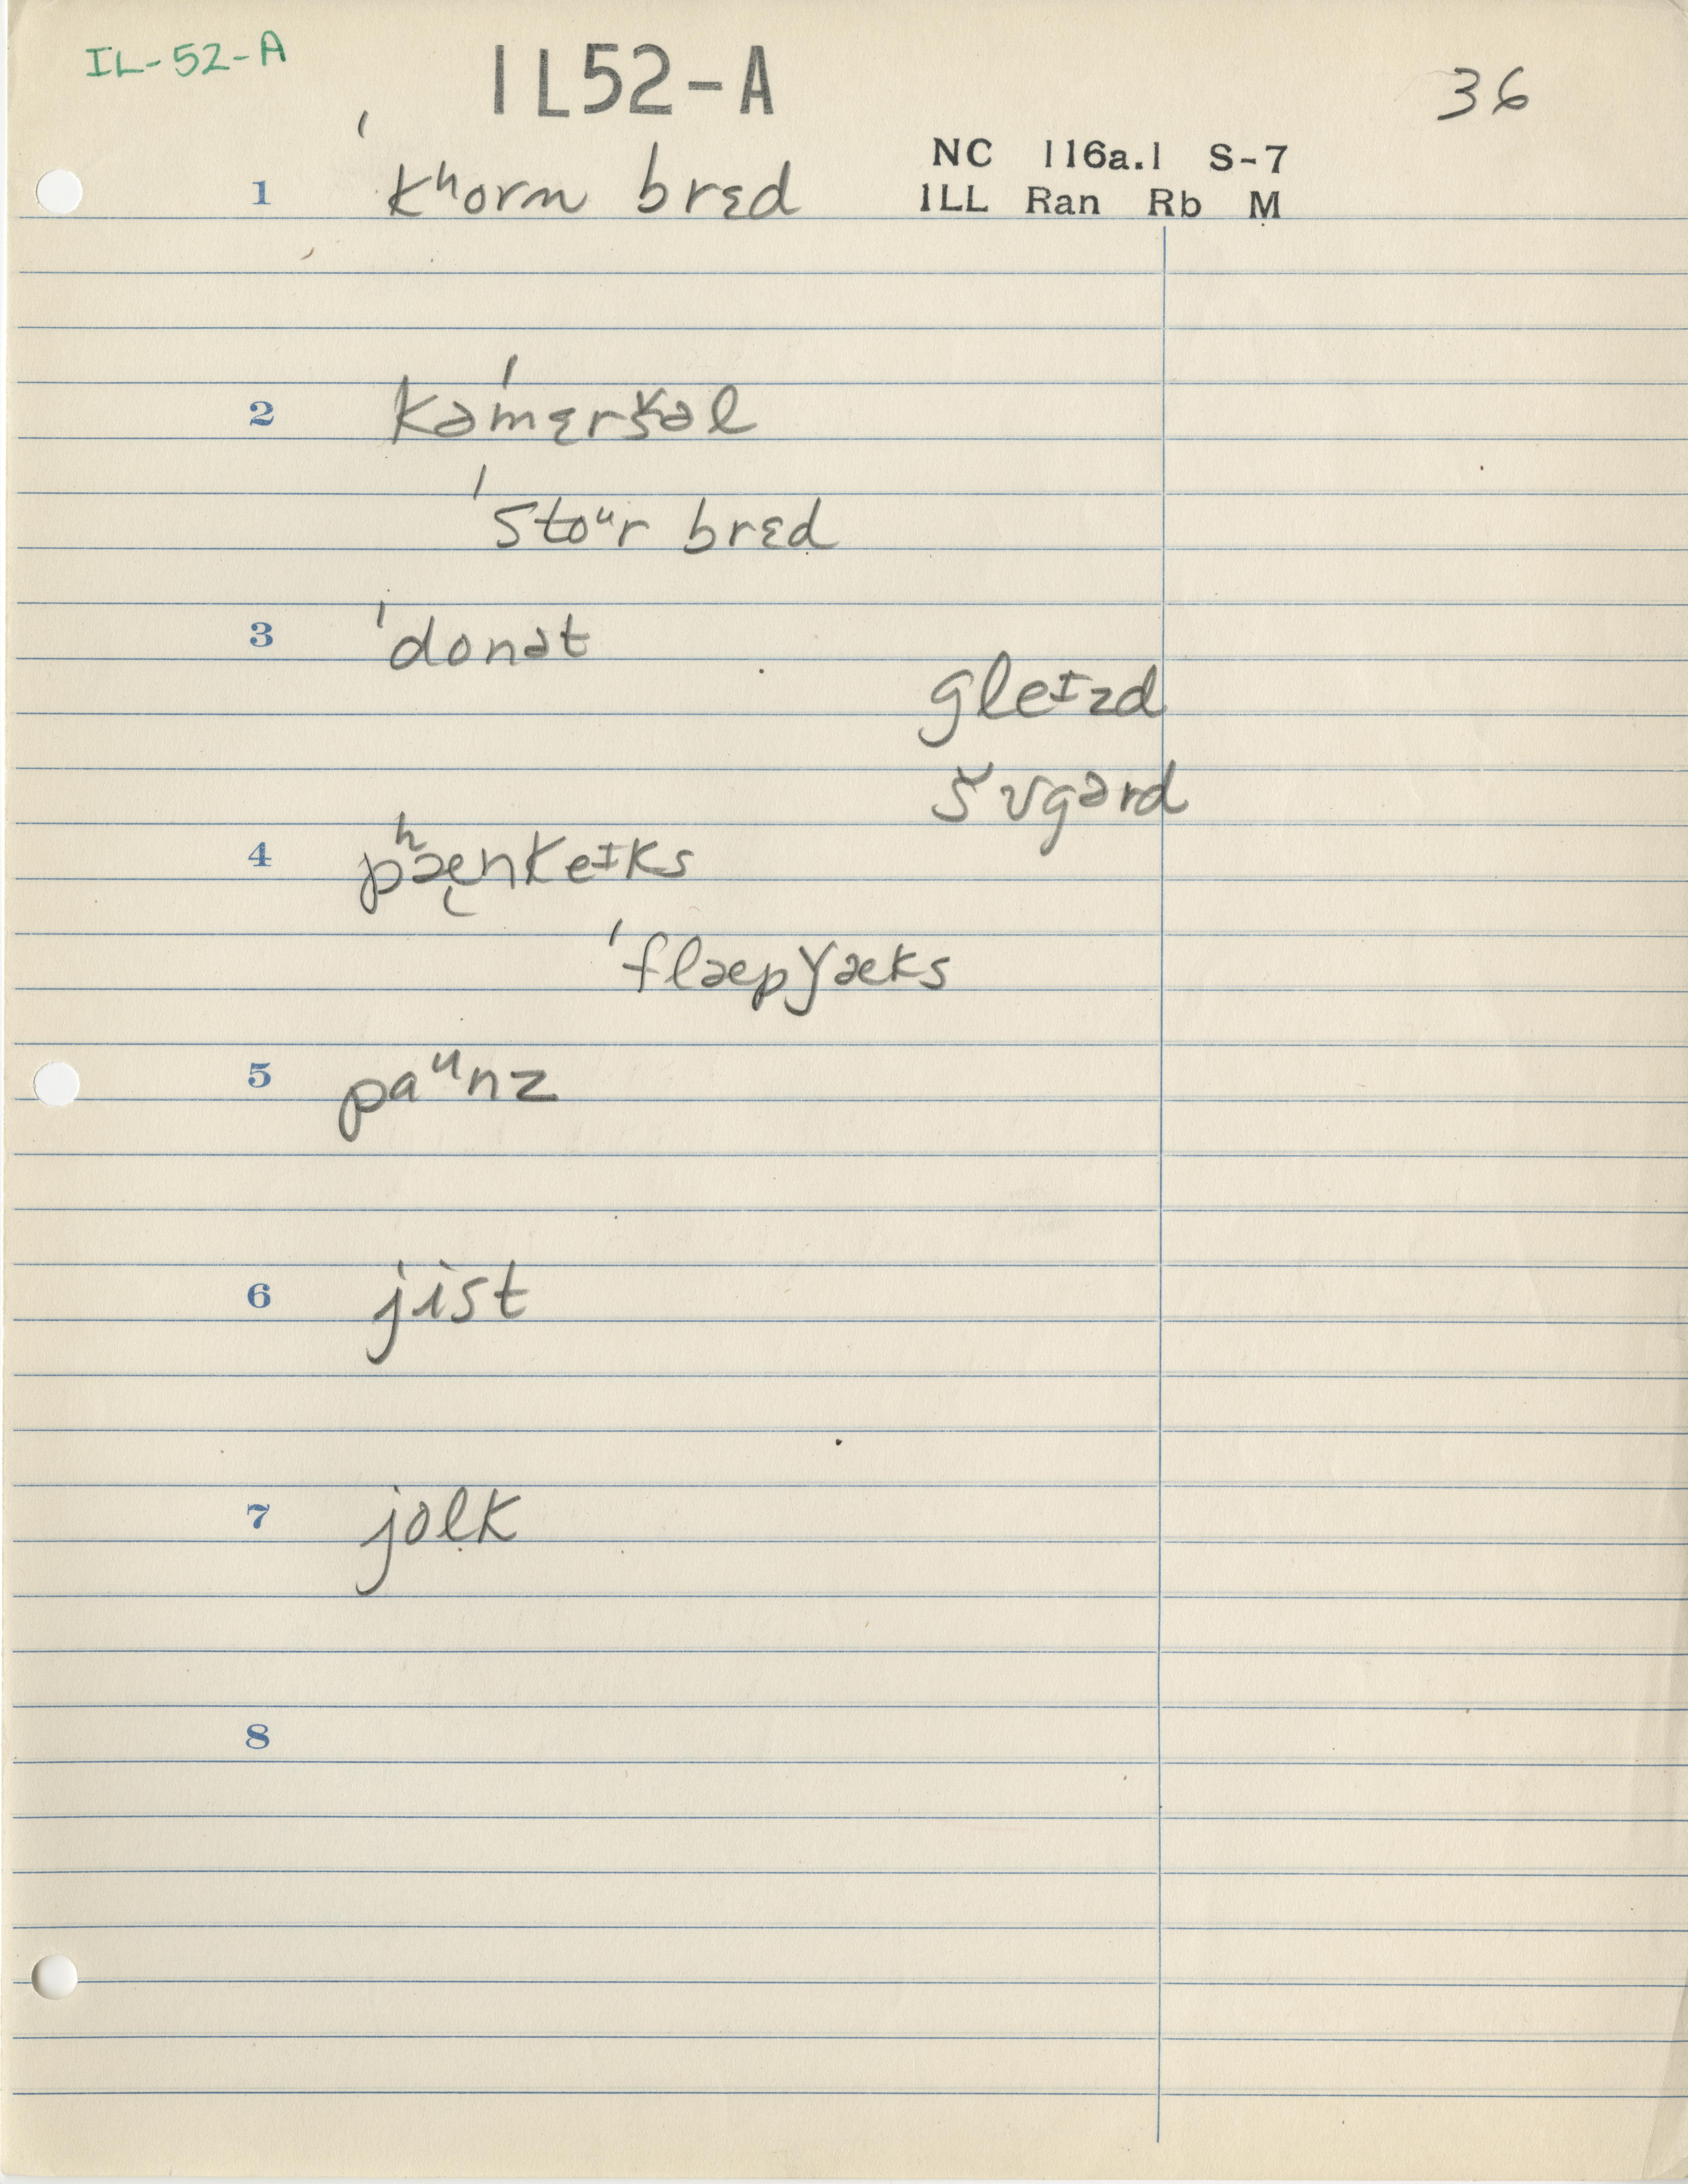 IL-52-A
IL52-A
36
NC 116a.1 S-7
ILL Ran Rb M
1 ˈkʰorn brɛd
2 kəˈmɛršəl
ˈstoᵘr brɛd
3 ˈdonət
gleɪzd
šʊgərd
4 pʰæ̨nkeɪks
ˈflæpǰæks
5 paᵘnz
6 jist
7 jolk
8